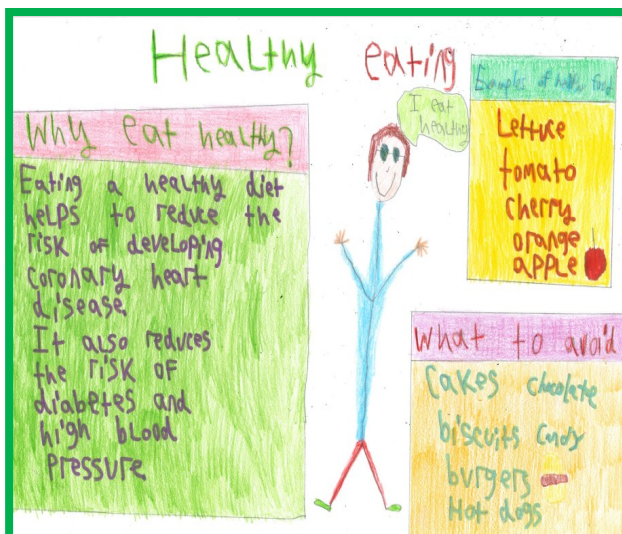 Healthy eating
Why eat healthy?
Eating a healthy diet
helps to reduce the
risk of developing
coronary heart
disease.
It also reduces
the risk of
diabetes and
high blood
pressure
I eat
healthy
Examples of healthy food
Lettuce
tomato
cherry
orange
apple
What to avoid
Cakes chocolate
biscuits Candy
burgers
Hot dogs